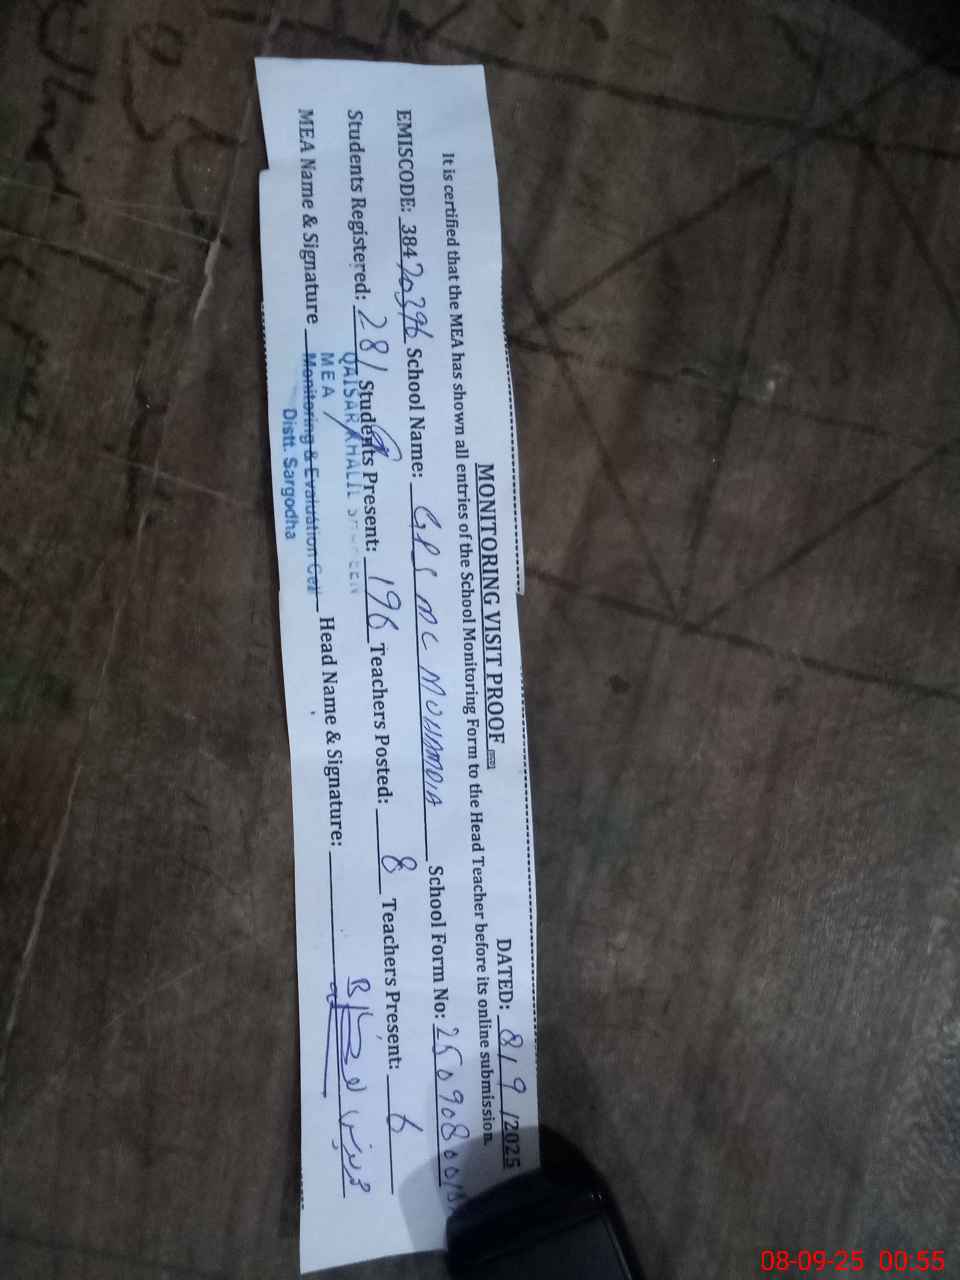 MONITORING VISIT PROOF
DATED: 8/9/2025
It is certified that the MEA has shown all entries of the School Monitoring Form to the Head Teacher before its online submission.
EMISCODE: 38420396 School Name: GPS MC MOHAMDIA School Form No: 250908001
Students Registered: 281 Students Present: 196 Teachers Posted: 8 Teachers Present: 6
MEA Name & Signature Head Name & Signature:
QAISAR KHALIL
MEA
Monitoring & Evaluation Cell
Distt. Sargodha
08-09-25 00:55